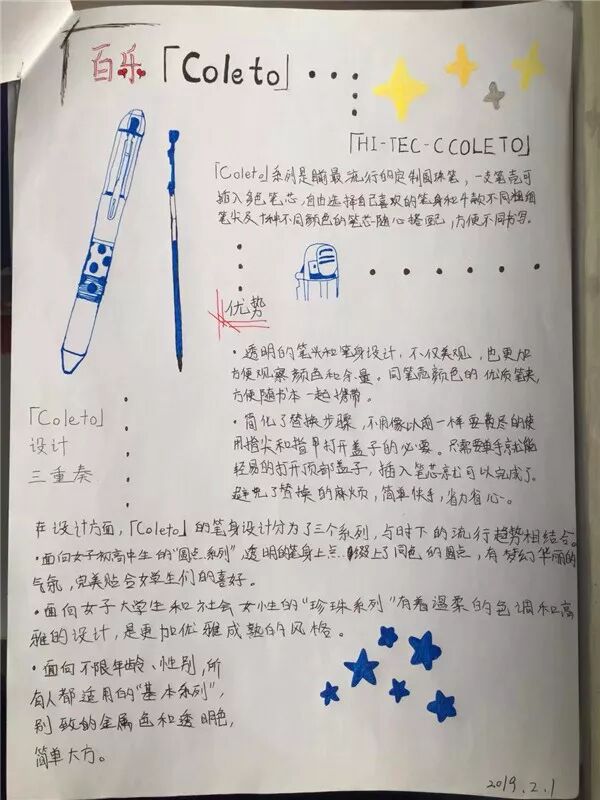 百乐「Coleto」...
「HI-TEC-C COLETO」
「Coleto」系列是时最流行的定制圆珠笔,一支笔壳可
插入多色笔芯,自由选择自己喜欢的笔身和4款不同粗细
笔尖及十种不同颜色的笔芯随心搭配,方便不同书写。
优势
·透明的笔头和笔身设计,不仅美观,也更加
方便观察颜色和余量。同笔壳颜色的优质笔夹,
方便随书本一起携带。
·简化了替换步骤,不用像以前一样要费尽的使
用指尖和指甲打开盖子的必要。只需要单手就能
轻易的打开顶部盖子,插入笔芯就可以完成了。
避免了替换的麻烦,简单快手,省力省心。
「Coleto」
设计
三重奏
在设计方面,「Coleto」的笔身设计分为了三个系列,与时下的流行趋势相结合。
·面向女子初高中生的“圆点系列”透明的笔身上点缀上了同色的圆点,有梦幻华丽的
气氛,完美贴合女学生们的喜好。
·面向女子大学生和社会女性的“珍珠系列”有着温柔的色调和高
雅的设计,是更加优雅成熟的风格。
·面向不限年龄、性别,所
有人都适用的“基本系列”,
别致的金属色和透明色,
简单大方。
2019.2.1